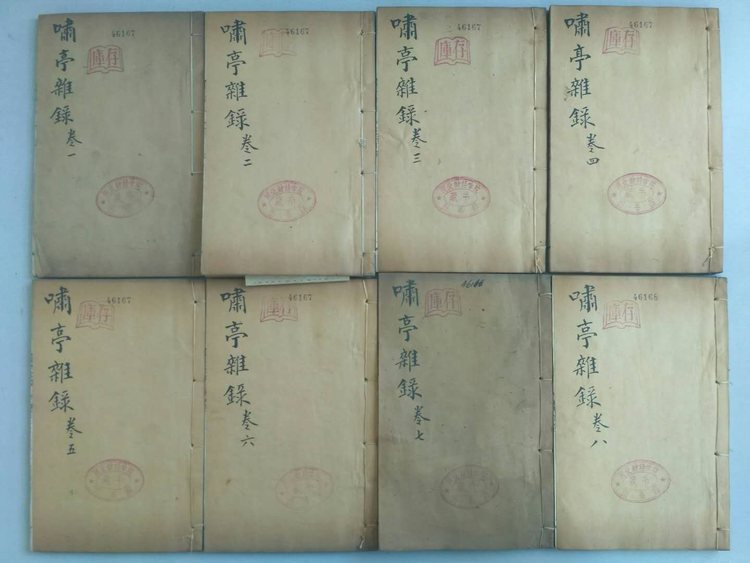 嘯亭雜錄卷一
46167
存庫
嘯亭雜錄卷二
46167
嘯亭雜錄卷三
46167
存庫
嘯亭雜錄卷四
46167
存庫
嘯亭雜錄卷五
46167
存庫
嘯亭雜錄卷六
46167
存庫
嘯亭雜錄卷七
存庫
嘯亭雜錄卷八
46168
存庫